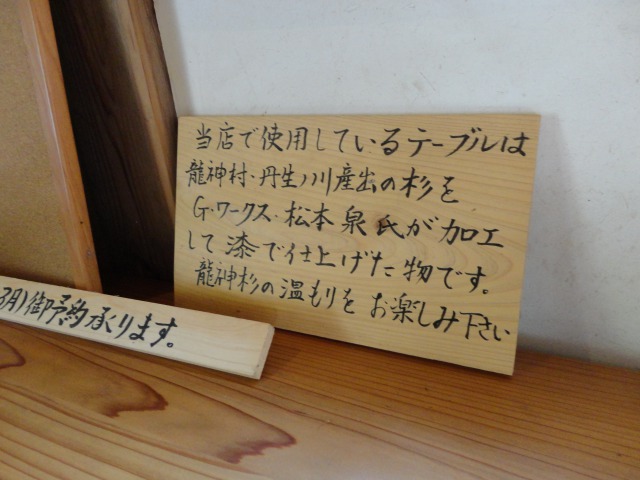 当店で使用しているテーブルは
龍神村・丹生ノ川産出の杉を
G・ワークス・松本泉氏が加工
して漆で仕上げた物です。
龍神杉の温もりをお楽しみ下さい
月)御予約承ります。